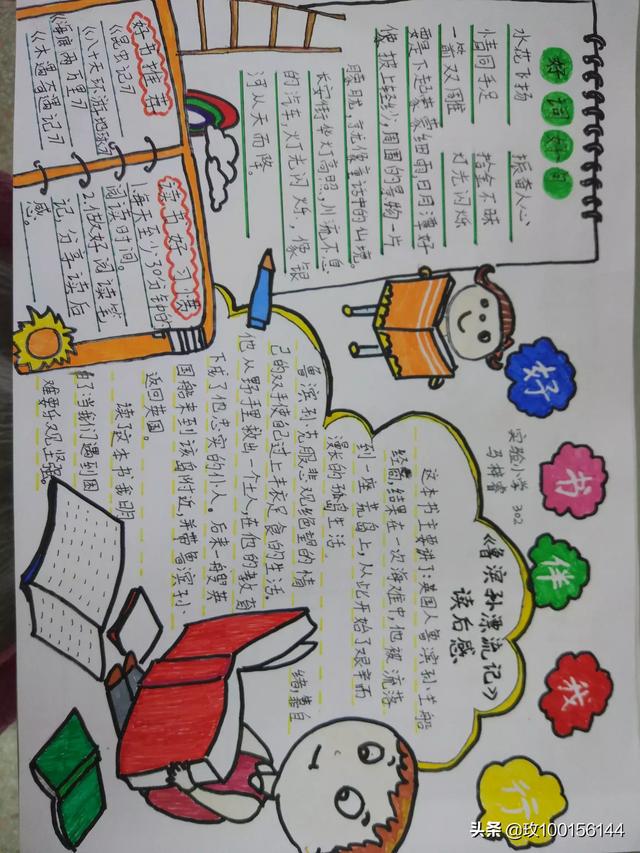 好书伴我行
实验小学 302
马梓睿
好词好句
水花飞扬 振奋人心
情同手足 拾金不昧
一箭双雕 灯光闪烁
要是下起蒙蒙细雨日月潭好
像披上轻纱,周围的景物一片
朦胧,就像童话中的仙境。
长安街华灯高照,川流不息
的汽车,灯光闪烁,像银
河从天而降。
好书推荐
《昆虫记》
《八十天环游地球》
《海底两万里》
《木偶奇遇记》
读书好习惯
1.每天至少30分钟的
阅读时间。
2.做好阅读笔
记,分享读后
感。
《鲁滨孙漂流记》
读后感
这本书主要讲了:英国人鲁滨孙坐船
结果在一次海难中,他被流落
到一座荒岛上,从此开始了艰辛而
漫长的孤岛生活
鲁滨孙克服悲观绝望的情绪,靠自
己的双手使自己过上丰衣足食的生活
他从野理救出一个土人,在他的教育
下成了他忠实的仆人。后来一艘英
国船来到该岛附近,并带鲁滨孙
返回英国。
读了这本书我明
白了当我们遇到困
难要乐观坚强。
头条 @玫100156144